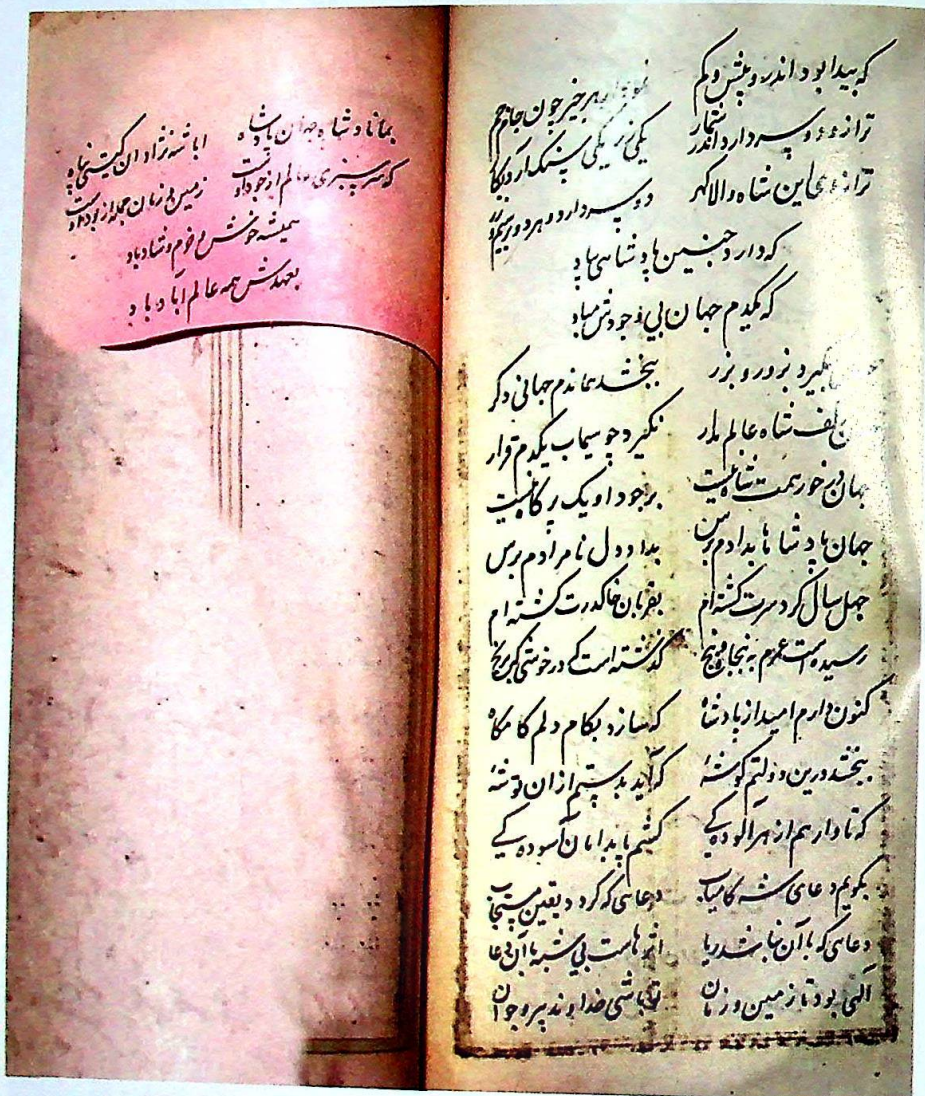 که پیدا بود اندرو بیش و کم نمودار هر چیز چون جام جم
ترازو دو سر دارد اندر شمار یکی زر یکی سنگ آرد بکار
ترازوی این شاه والا گهر دو سر دارد و هر دو پر سیم و زر
که دارد چنین پادشاهی بیاد
که یکدم جهان بی وجودش مباد
بگیرد بزور و بزر ببخشد هماندم جهانی دکر
کف شاه عالم مدار نگیرد چو سیماب یکدم قرار
جهان در خور همت شاه نیست بر جود او یک پر کاه نیست
جهان پادشاها بدادم برس بداد دل نامرادم برس
چهل سال کرد سرت کشته ام بقربان خاک درت کشته ام
رسیده است عمرم به پنجاه و پنج کذشته است که در خوشی که برنج
کنون دارم امید از پادشاه که سازد بکام دلم کامکاه
ببخشد درین دولتم کوشهٔ که آید بدستم از ان توشهٔ
که تا وارهم از هر آلوده کی کشم پا بدامان آسوده کی
بکویم دعای شه کامیاب دعائی که کردد یقین مستجاب
دعائی که با آن نباشد ریا اثرهاست بی شبهه با آن دعا
الهی بود تا زمین و زمان تو باشی خداوند پیر و جوان
بماناد شاه جهان پادشاه ابا شه نژادان کیتی پناه
که سرسبزی عالم از جود اوست زمین و زمان جمله از بود اوست
همیشه خوش و خرم و شاد باد
بعهدش همه عالم آباد باد